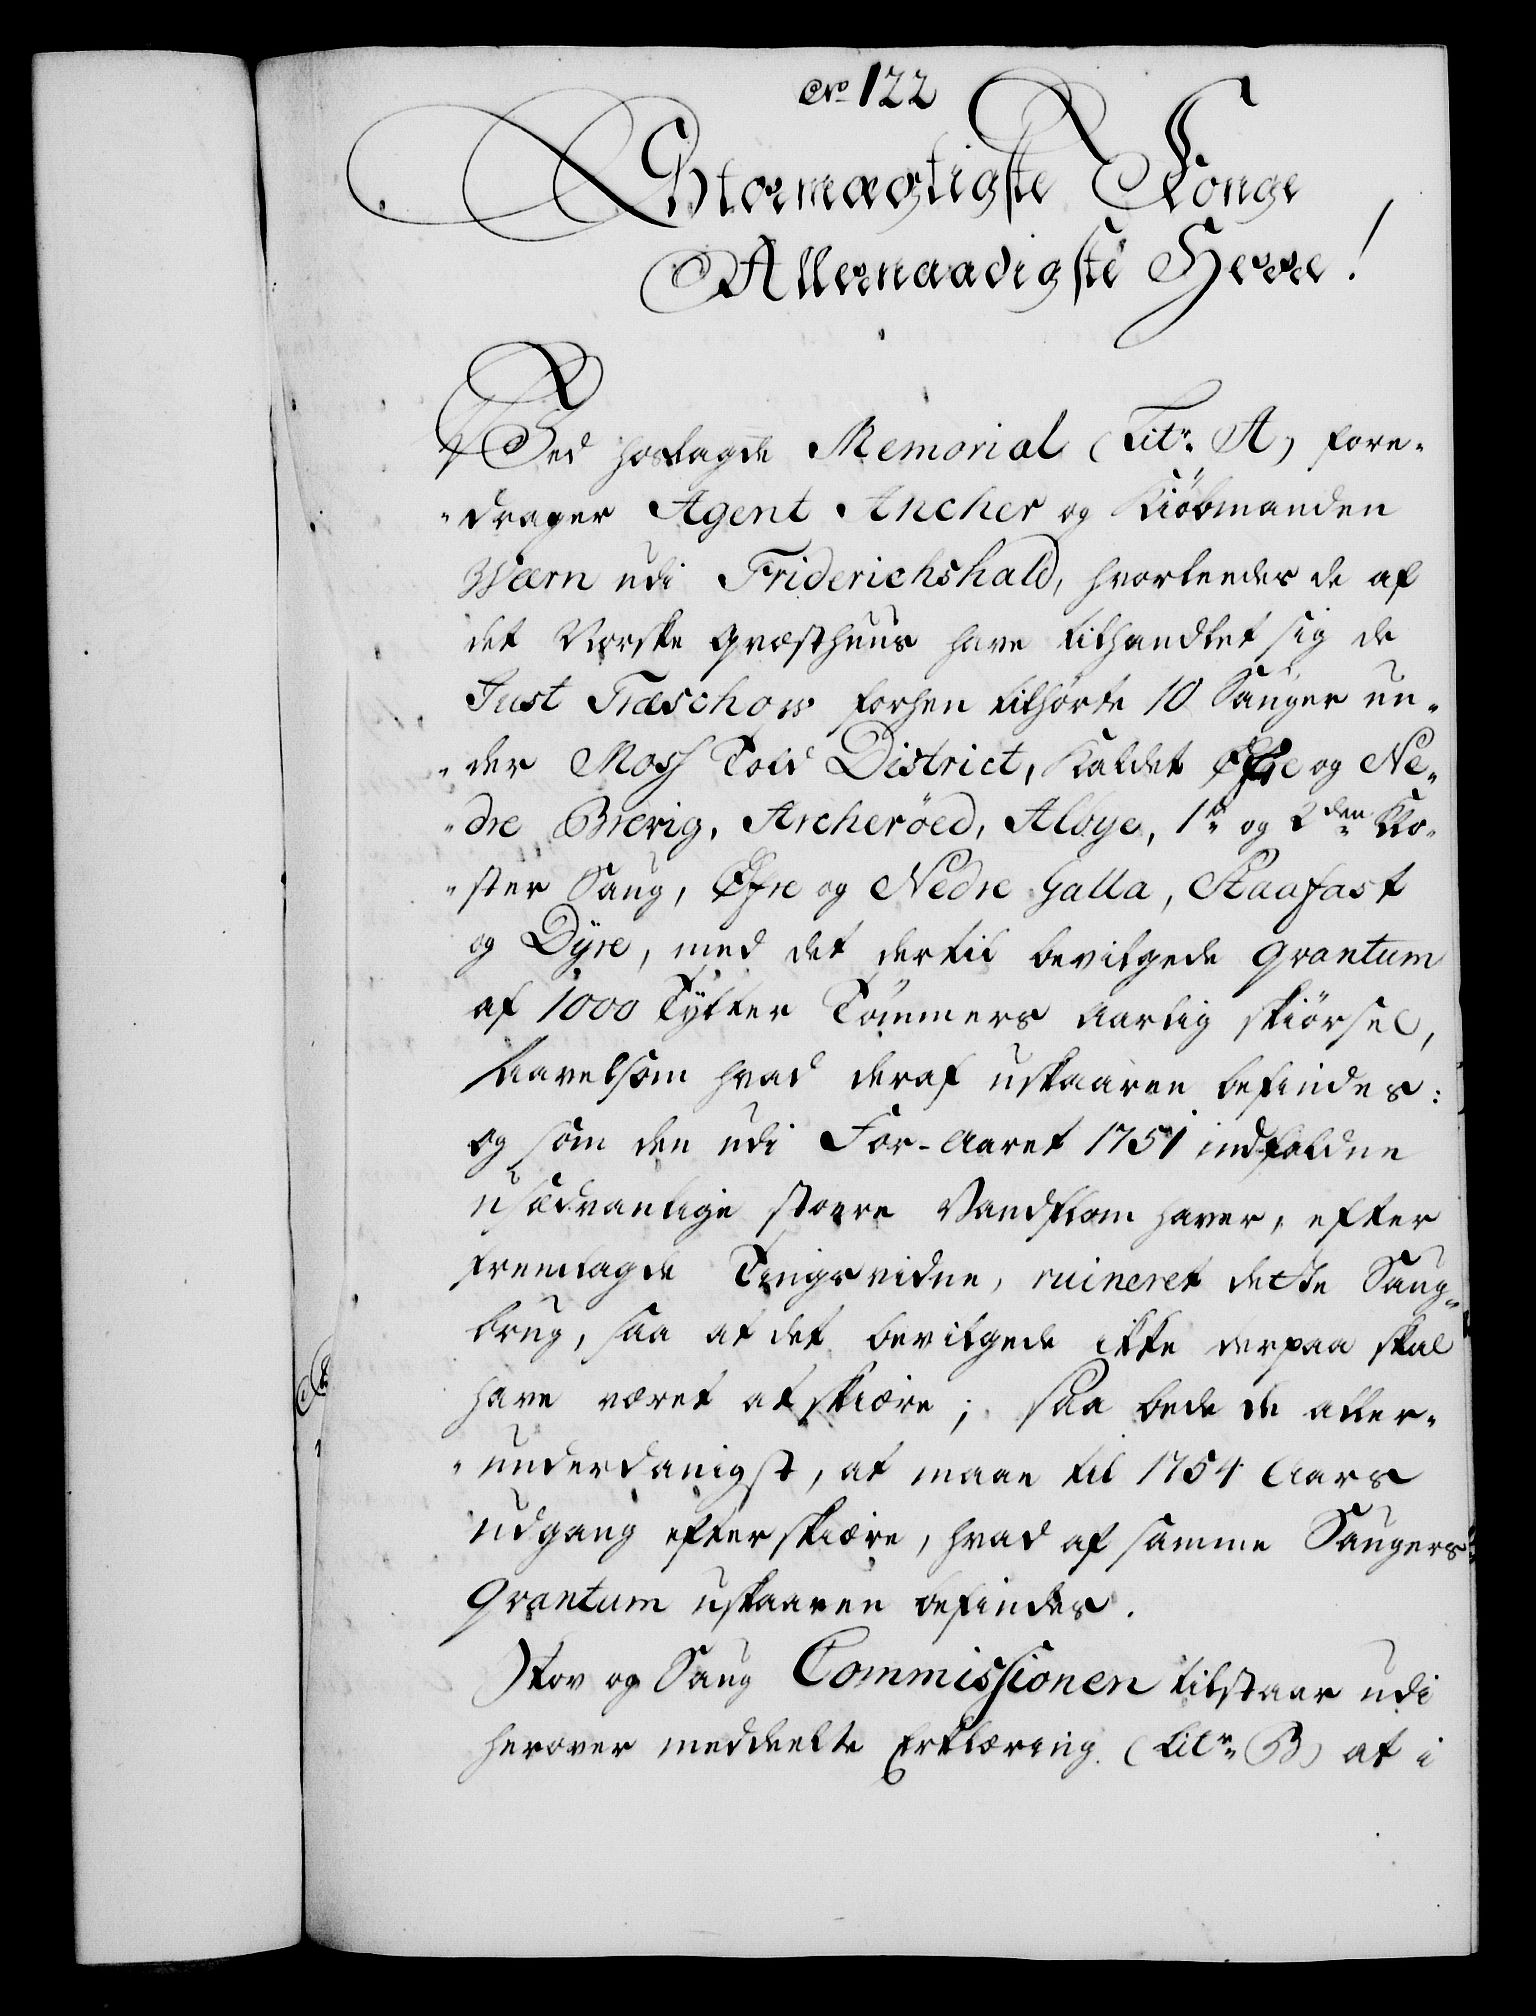 No 122
Stormægtigste Konge
Allernaadigste Herre!
Ved hoslagde Memorial (Litr. A) fore-
-drager Agent Ancher og Kiöbmanden
Wærn udi Friderichshald, hvorleedes de af
det Norske Qvæsthuus have tilhandlet sig de
Just Træschow forhen tilhörte 10 Sauger un-
-der Moss Told District, kaldet Öfre og Ne-
-dre Brevig, Archeröed, Alбye, 1te og 2den Klo-
-ster Saug, Öfre og Nedre Galla, Staafast
og Dÿre, med det dertil bevilgede Qvantum
af 1000 Tÿlter Tömmers Aarlig skiörsel,
saavelsom hvad deraf uskaaren befindes:
og som den udi For-Aaret 1751 indfaldne
usædvanlige stoere Vandflom haver, efter
fremlagde Tingsvidne, ruineret dette Saug-
brug, saa at det bevilgede ikke derpaa skal
have været at skiære; saa bede de aller-
-underdanigst, at maae til 1754 Aars
udgang efterskiære, hvad af samme Saugers
Qvantum uskaaren befindes.
Skov og Saug Commissionen tilstaar udi
herover meddeelte Erklæring (Litr. B) at i